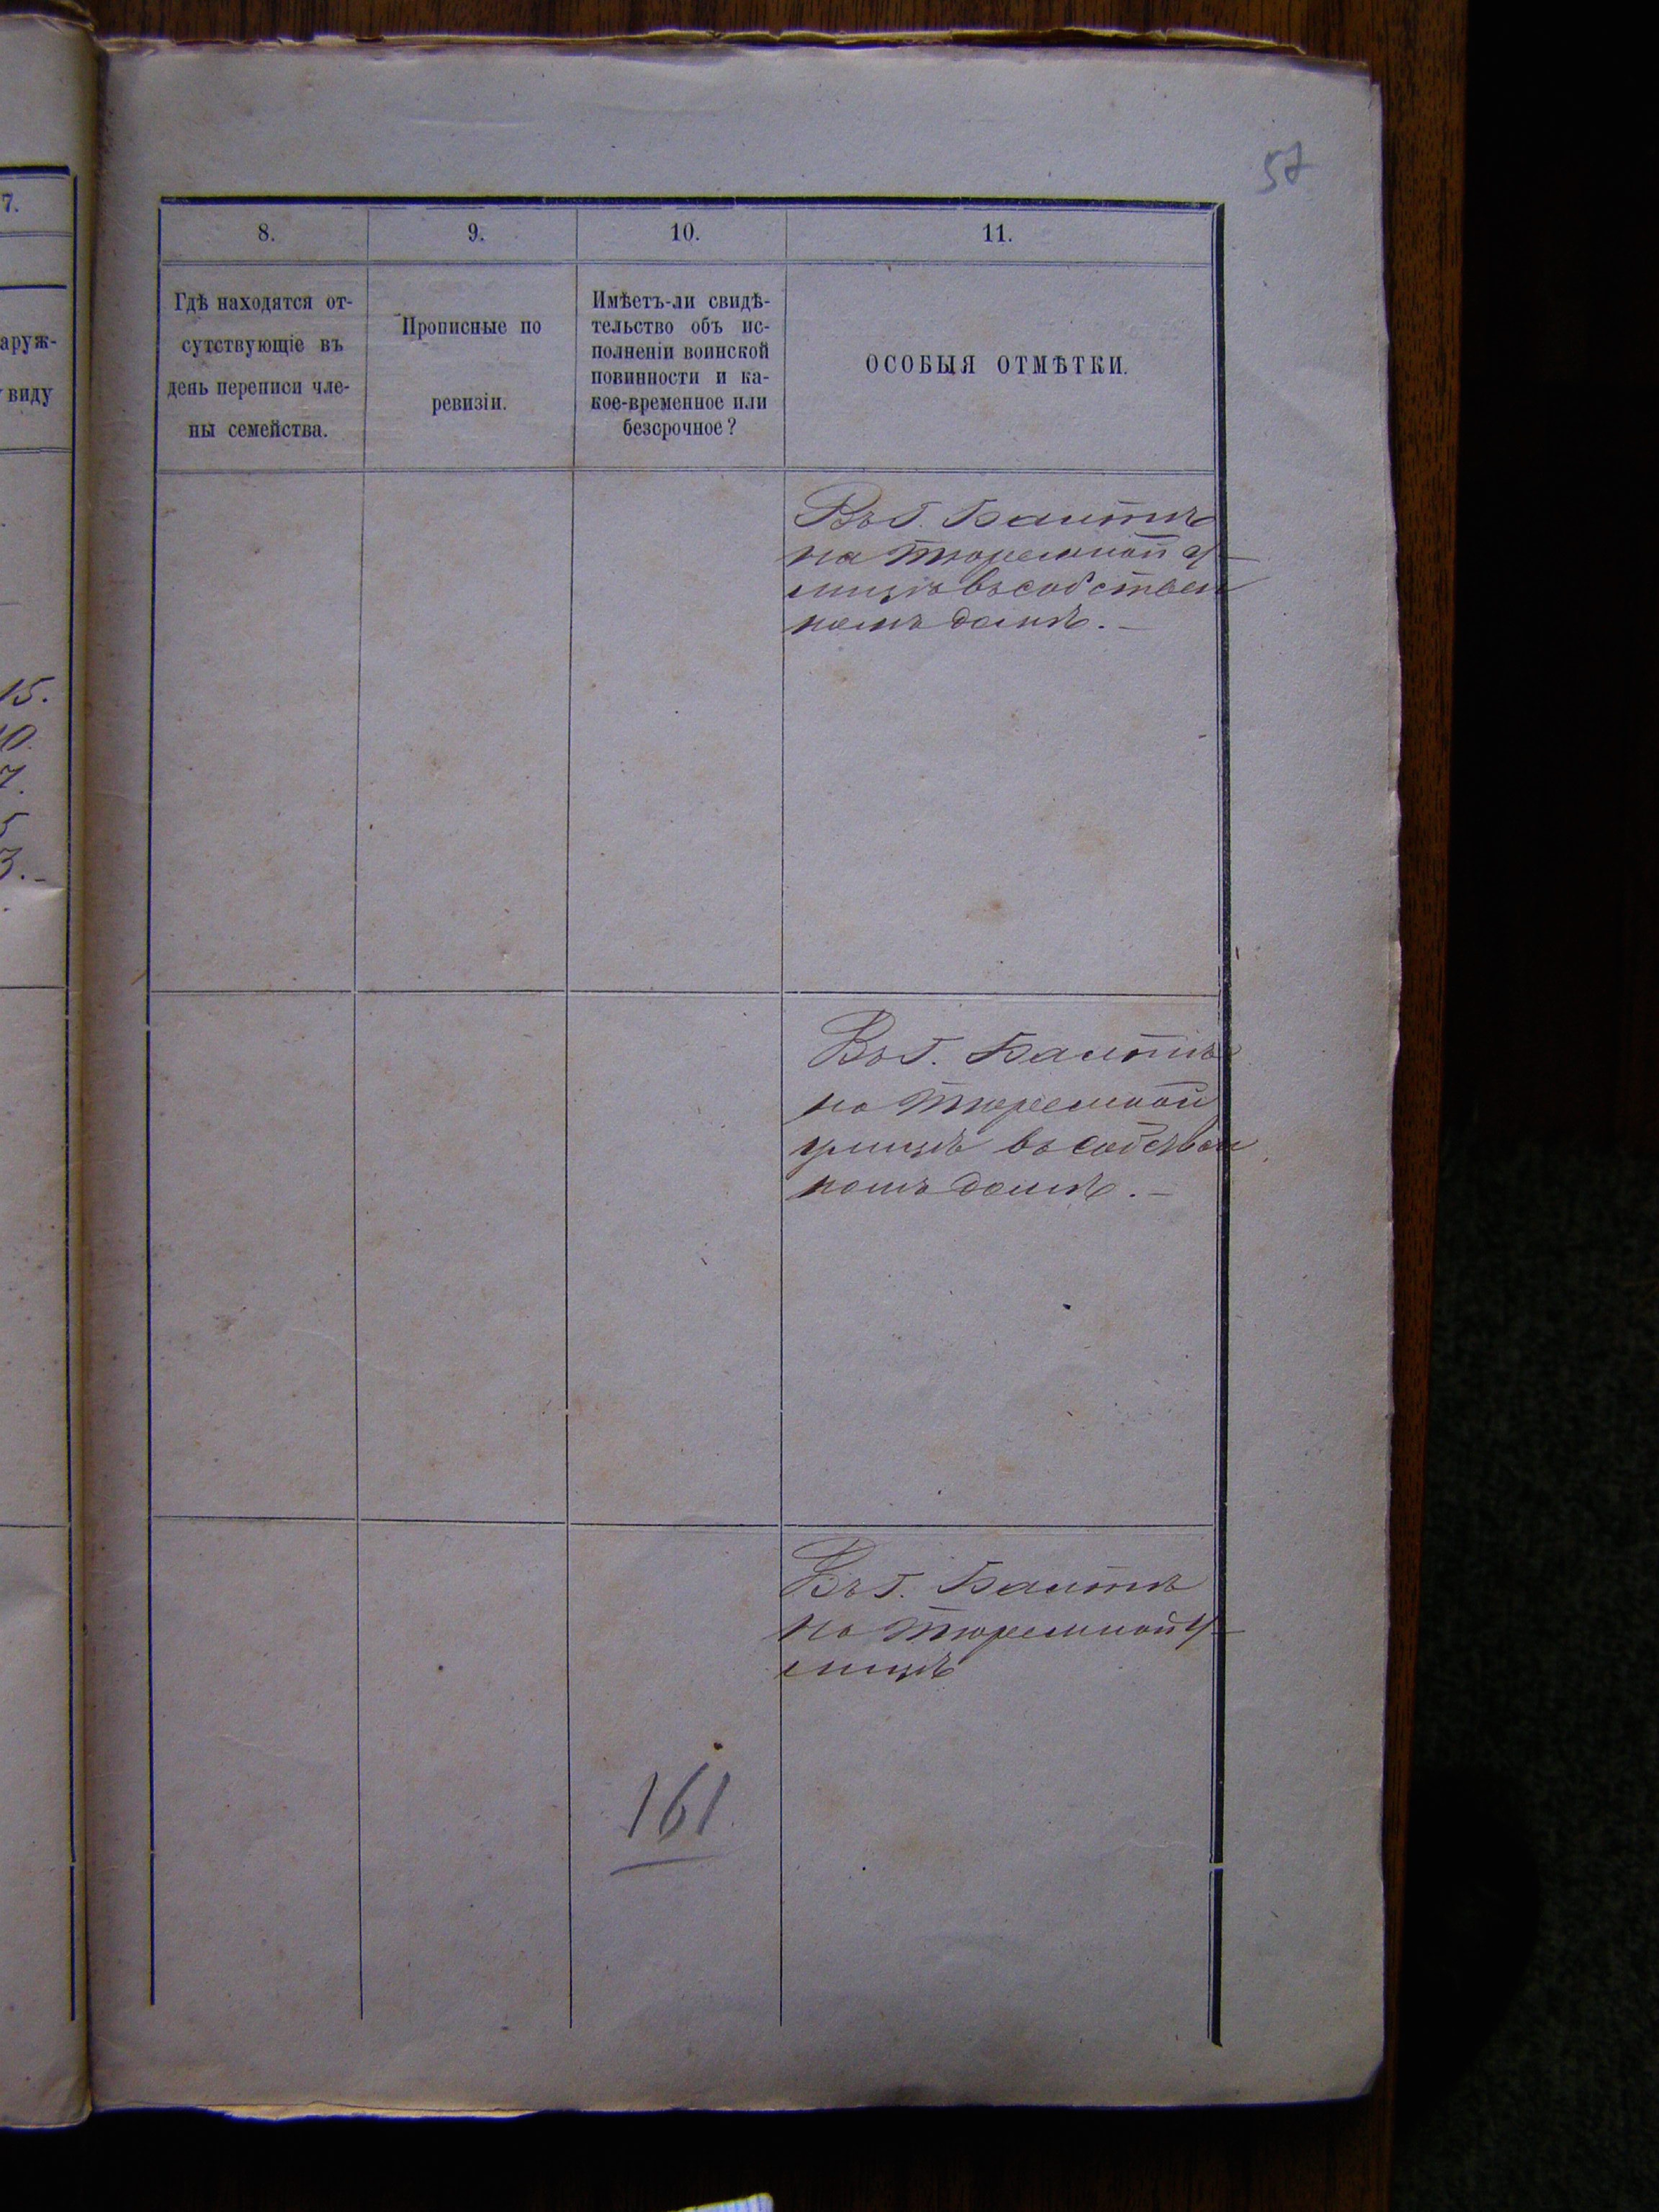 57
7.
аруж-
виду
15.
10.
7.
5
3.-
8.
9.
10.
11.
Гдѣ находятся от-
сутствующіе въ
день переписи чле-
ны семейства.
Прописные по
ревизіи.
Имѣетъ-ли свидѣ-
тельство объ ис-
полненіи воинской
повинности и ка-
кое-временное или
безсрочное?
ОСОБЫЯ ОТМѢТКИ.
Въ г. Балтѣ
на тюремной у-
лицѣ въ собствен
номъ домѣ.-
Въ г. Балтѣ
на тюремной
улицѣ въ собствен
номъ домѣ.-
Въ г. Балтѣ
на тюремной у-
лицѣ
161